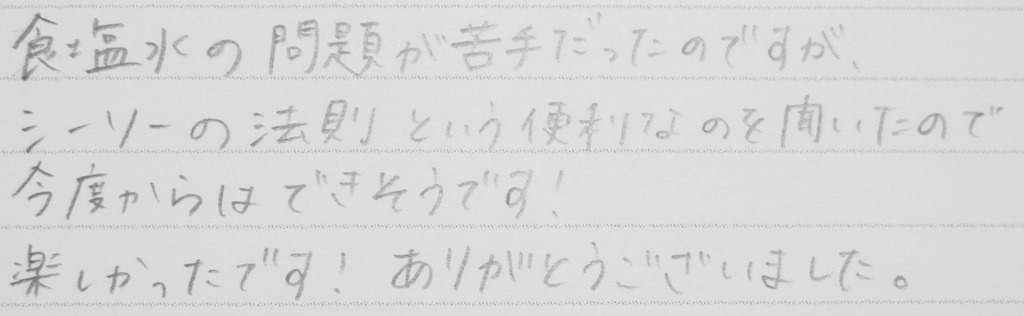 食塩水の問題が苦手だったのですが、
シーソーの法則という便利なのを聞いたので
今度からはできそうです！
楽しかったです！ ありがとうございました。